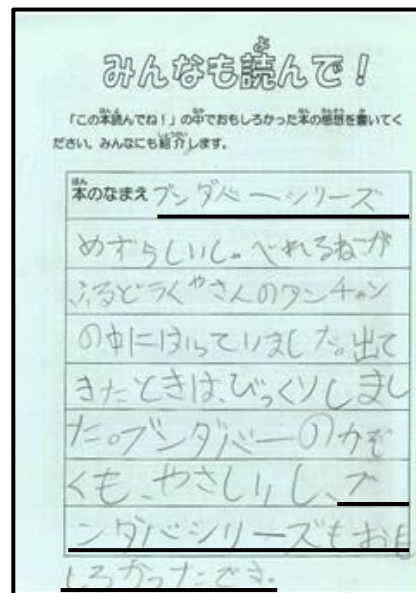 みんなも読んで!
「この本読んでね!」の中でおもしろかった本の感想を書いてく
ださい。みんなにも紹介します。
本のなまえ ブンダバーシリーズ
めずらしいし。べれるねーが
ふるどうぐやさんのタンチャン
の中にはいっていました。出て
きたときは、びっくりしまし
た。ブンダバーのかぞ
くも、やさしいし、ブ
ンダバシリーズもおも
しろかったでき。